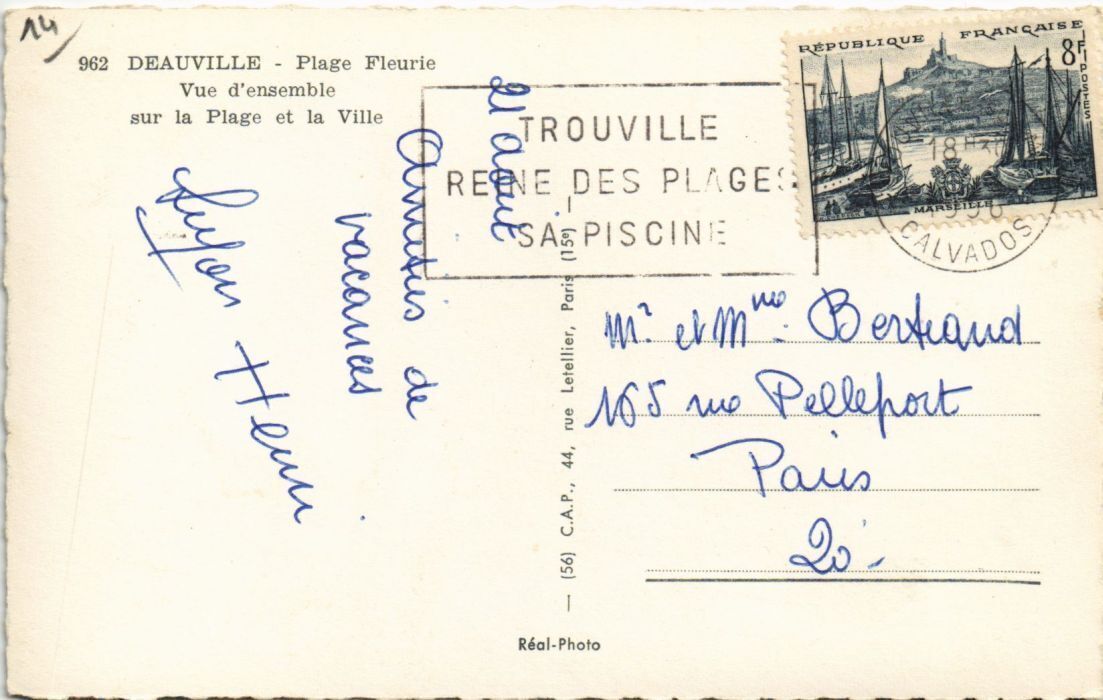 14
962 DEAUVILLE - Plage Fleurie
Vue d'ensemble
sur la Plage et la Ville
RÉPUBLIQUE FRANÇAISE
8F
POSTES
MARSEILLE
TROUVILLE
REINE DES PLAGES
SA PISCINE
18H
CALVADOS
21 août
Amitiés de
vacances
Henri
Mr et Mme Bertrand
165 rue Pelleport
Paris
20
— (56) C.A.P., 44, rue Letellier, Paris (15e) —
Réal-Photo